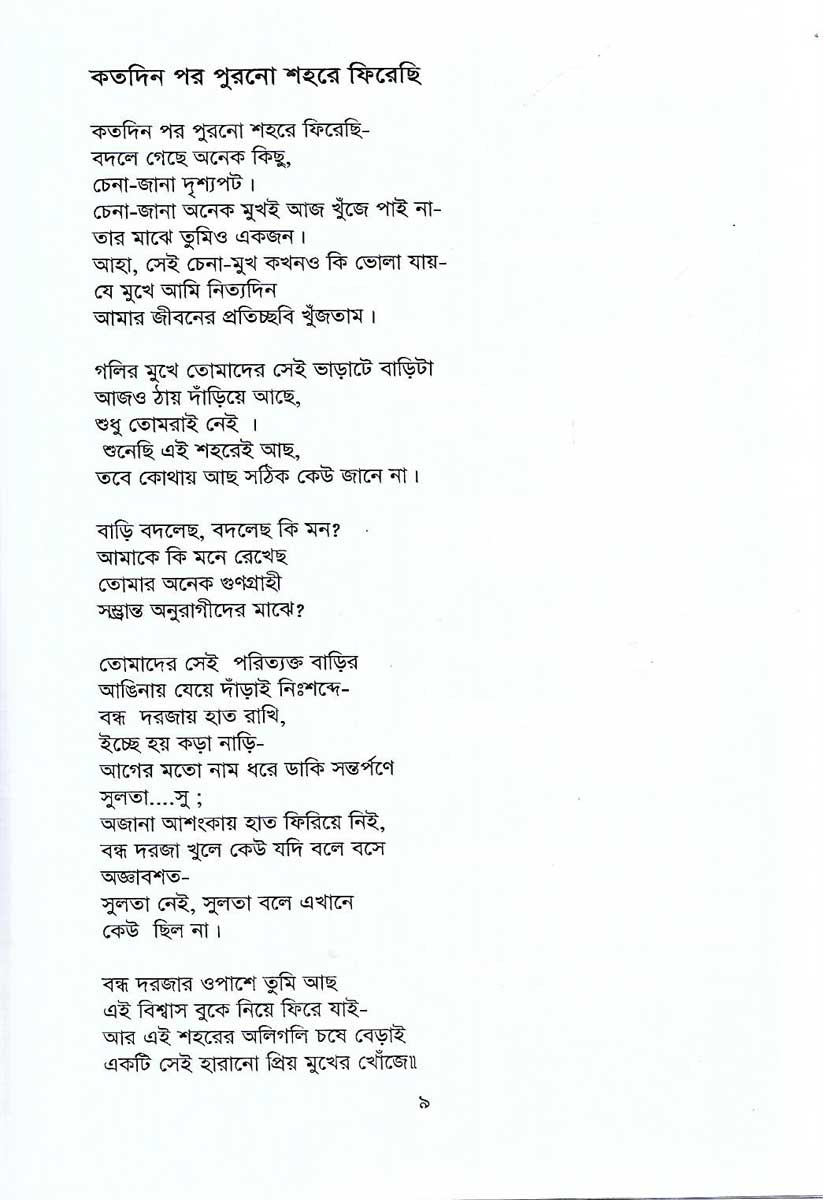 কতদিন পর পুরনো শহরে ফিরেছি
কতদিন পর পুরনো শহরে ফিরেছি-
বদলে গেছে অনেক কিছু,
চেনা-জানা দৃশ্যপট।
চেনা-জানা অনেক মুখই আজ খুঁজে পাই না-
তার মাঝে তুমিও একজন।
আহা, সেই চেনা-মুখ কখনও কি ভোলা যায়-
যে মুখে আমি নিত্যদিন
আমার জীবনের প্রতিচ্ছবি খুঁজতাম।
গলির মুখে তোমাদের সেই ভাড়াটে বাড়িটা
আজও ঠায় দাঁড়িয়ে আছে,
শুধু তোমরাই নেই ।
শুনেছি এই শহরেই আছ,
তবে কোথায় আছ সঠিক কেউ জানে না।
বাড়ি বদলেছ, বদলেছ কি মন?
আমাকে কি মনে রেখেছ
তোমার অনেক গুণগ্রাহী
সম্ভ্রান্ত অনুরাগীদের মাঝে?
তোমাদের সেই পরিত্যক্ত বাড়ির
আঙিনায় যেয়ে দাঁড়াই নিঃশব্দে-
বন্ধ দরজায় হাত রাখি,
ইচ্ছে হয় কড়া নাড়ি-
আগের মতো নাম ধরে ডাকি সন্তর্পণে
সুলতা....সু ;
অজানা আশংকায় হাত ফিরিয়ে নিই,
বন্ধ দরজা খুলে কেউ যদি বলে বসে
অজ্ঞাবশত-
সুলতা নেই, সুলতা বলে এখানে
কেউ ছিল না।
বন্ধ দরজার ওপাশে তুমি আছ
এই বিশ্বাস বুকে নিয়ে ফিরে যাই-
আর এই শহরের অলিগলি চষে বেড়াই
একটি সেই হারানো প্রিয় মুখের খোঁজে॥
৯